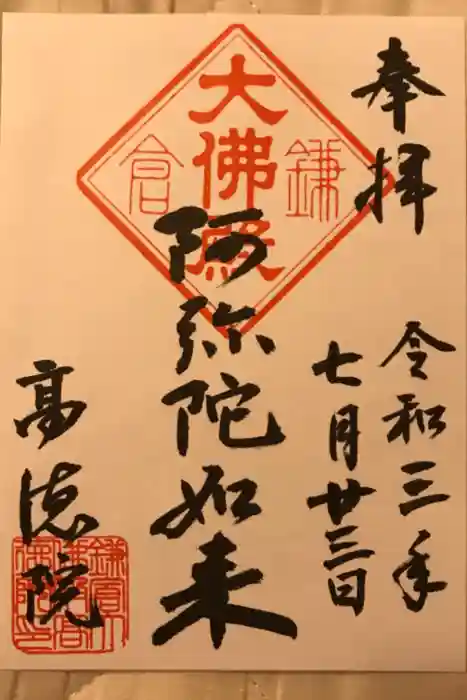 奉拝
令和三年
七月廿三日
鎌倉
大佛殿
阿弥陀如来
高徳院